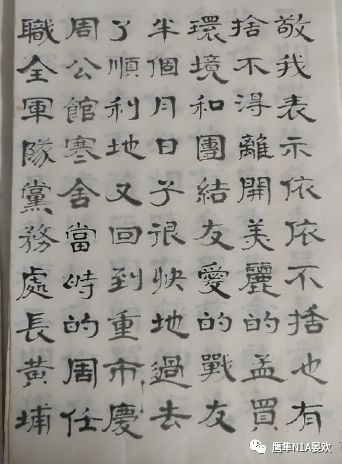 敬我表示依依不捨也有
捨不得離開美麗的孟買
環境和團結友愛的戰友
半個月日子很快地過去
了順利地又回到重市慶
周公館寒舍當時的周任
職全軍隊黨務處長黃埔
鹰隼N1A晏欢